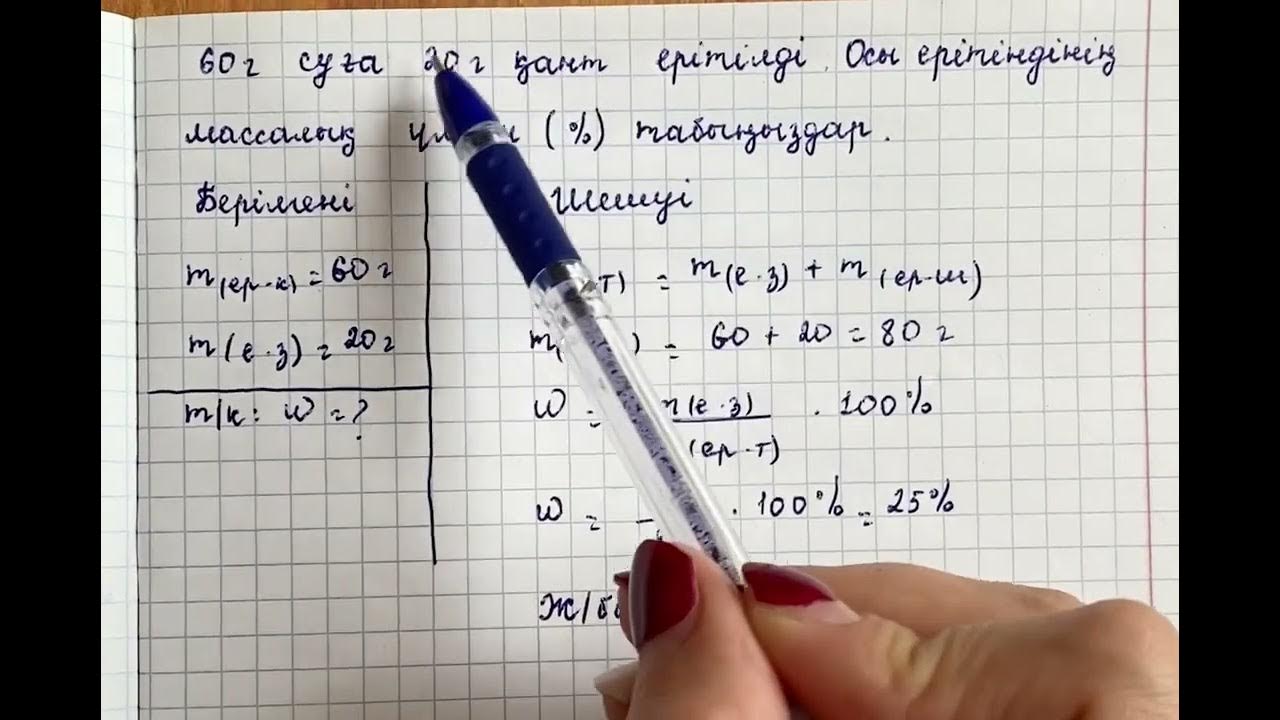 60г суға 20г қант ерітілді. Осы ерітіндінің
массалық (%) табыңыздар.
Берілгені Шешуі
m(ер-к) = 60г
m(е.з) = 20г
т/к: w = ?
т) = m(е.з) + m(ер-ш)
m( ) = 60 + 20 = 80г
w = (е.з) / (ер-т) · 100%
w = · 100% = 25%
Ж/